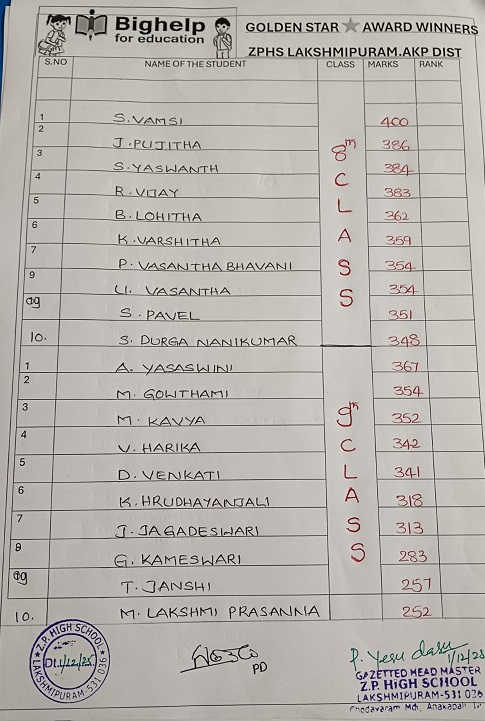 Bighelp
for education
GOLDEN STAR ★ AWARD WINNERS
ZPHS LAKSHMIPURAM.AKP DIST
S.NO NAME OF THE STUDENT CLASS MARKS RANK
1 S. VAMSI 400
2 J. PUJITHA 386
3 S. YASWANTH 384
4 R. VIJAY 383
5 B. LOHITHA 362
6 K. VARSHITHA 359
7 P. VASANTHA BHAVANI 354
9 U. VASANTHA 354
09 S. PAVEL 351
10. S. DURGA NANIKUMAR 348
8th CLASS
1 A. YASASWINI 367
2 M. GOWTHAMI 354
3 M. KAVYA 352
4 V. HARIKA 342
5 D. VENKATI 341
6 K. HRUDHAYANJALI 318
7 J. JAGADESWARI 313
8 G. KAMESWARI 283
09 T. JANSHI 257
10. M. LAKSHMI PRASANNA 252
9th CLASS
Z.P. HIGH SCHOOL
Dt.1/12/25
LAKSHMIPURAM-531 036
PD
P. Yesu dasu
1/12/25
GAZETTED HEAD MASTER
Z.P. HIGH SCHOOL
LAKSHMIPURAM-531 036
Chodavaram Mdl, Anakapalli